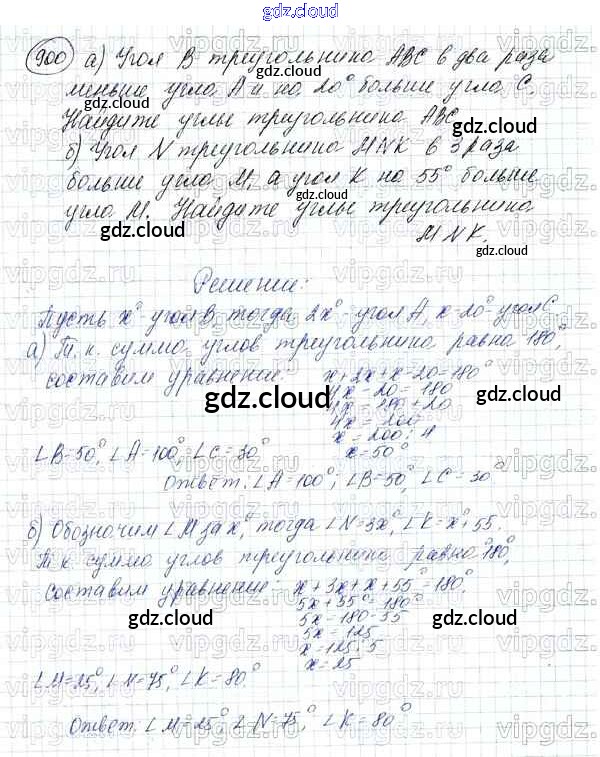 gdz.cloud
900 а) Угол В треугольника АВС в два раза
меньше угла А и на 20° больше угла С.
Найдите углы треугольника АВС.
б) Угол N треугольника MNK в 3 раза
больше угла М, а угол К на 55° больше
угла М. Найдите углы треугольника
MNK.
Решение:
Пусть x° - угол В, тогда 2x° - угол А, x-20° угол С.
а) Т.к. сумма углов треугольника равна 180°,
составим уравнение: x+2x+x-20=180°
4x-20=180°
4x=180+20
4x=200
x=200:4
x=50°
∠B=50°, ∠A=100°, ∠C=30°
Ответ: ∠A=100°, ∠B=50°, ∠C=30°
б) Обозначим ∠M за x°, тогда ∠N=3x°, ∠K=x°+55.
Т.к. сумма углов треугольника равна 180°,
составим уравнение: x+3x+x+55°=180°
5x+55°=180°
5x=180-55
5x=125
x=125:5
x=25
∠M=25°, ∠N=75°, ∠K=80°.
Ответ. ∠M=25°, ∠N=75°, ∠K=80°
gdz.cloud
vipgdz.ru